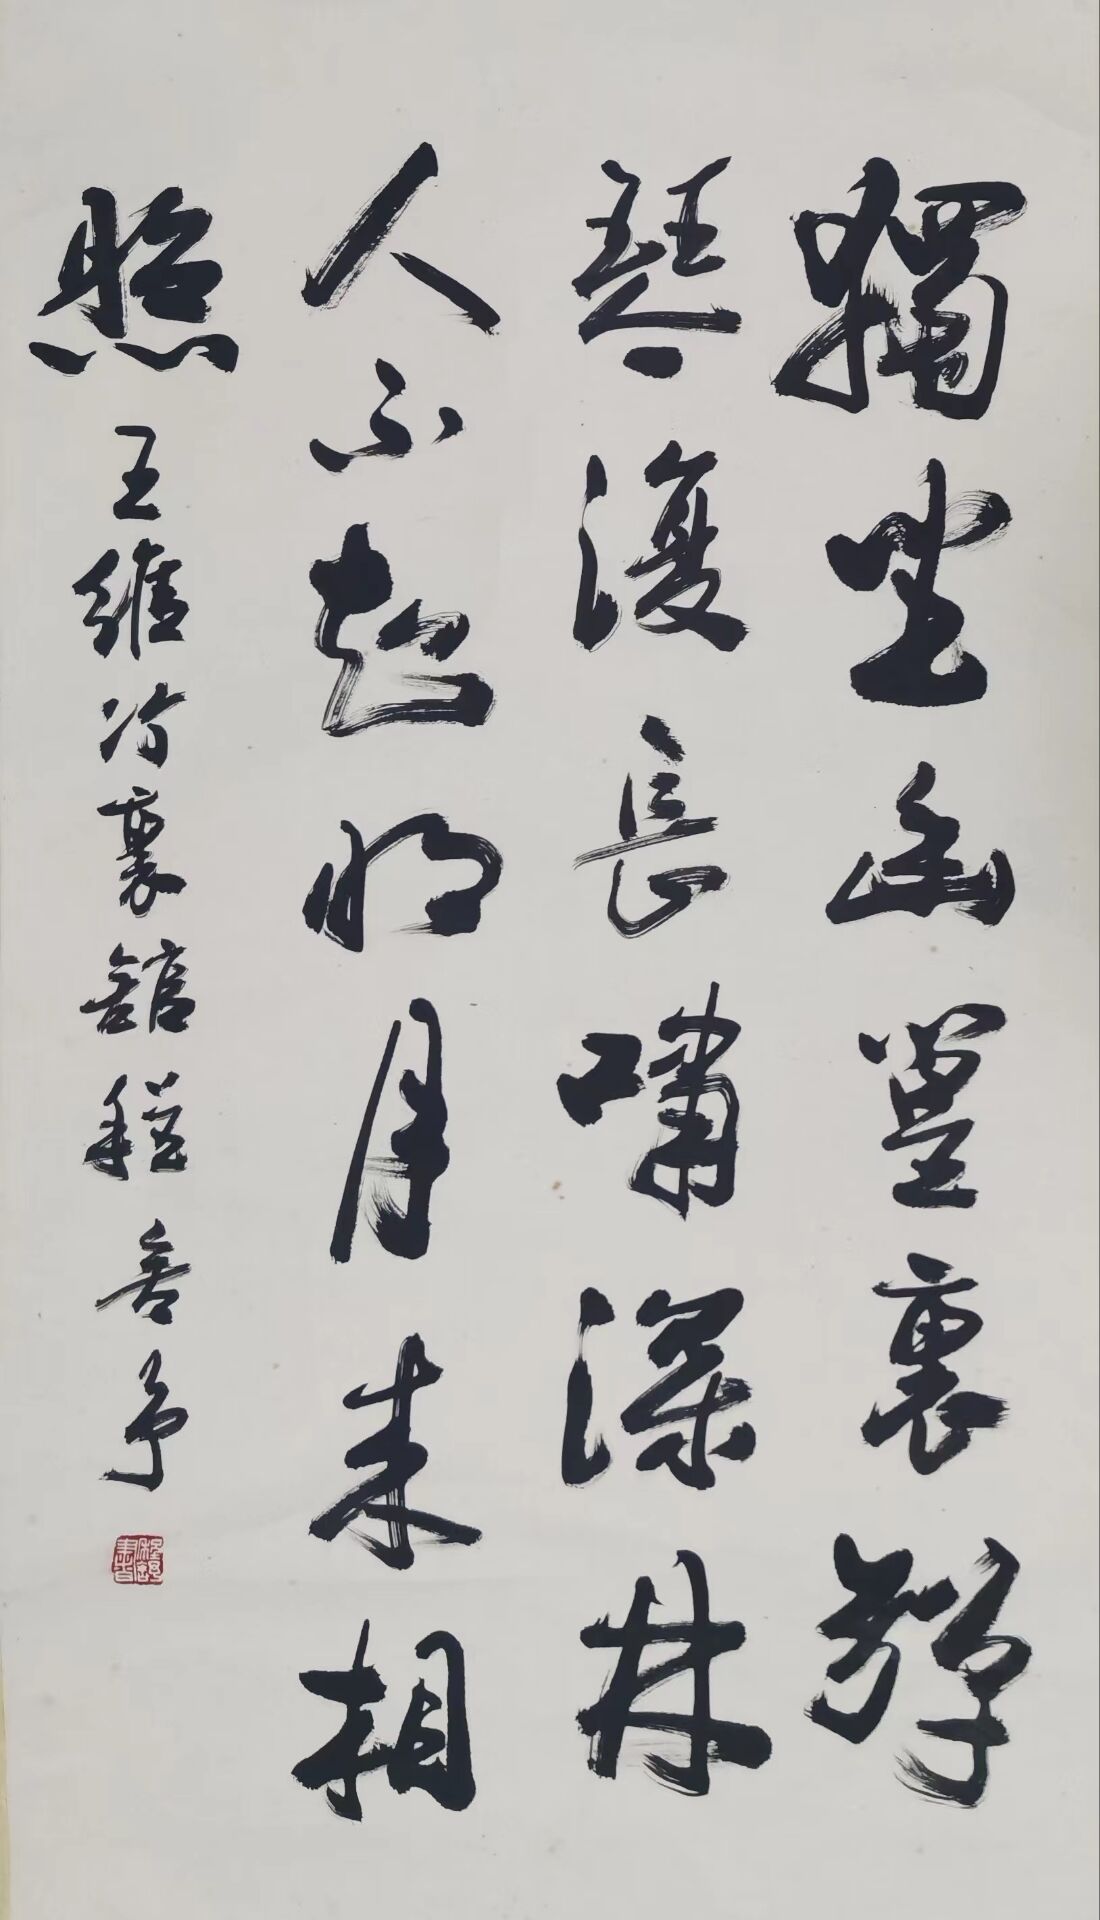 獨坐幽篁裏彈
琴復長嘯深林
人不知明月来相
照 王維竹裏館 程舍予